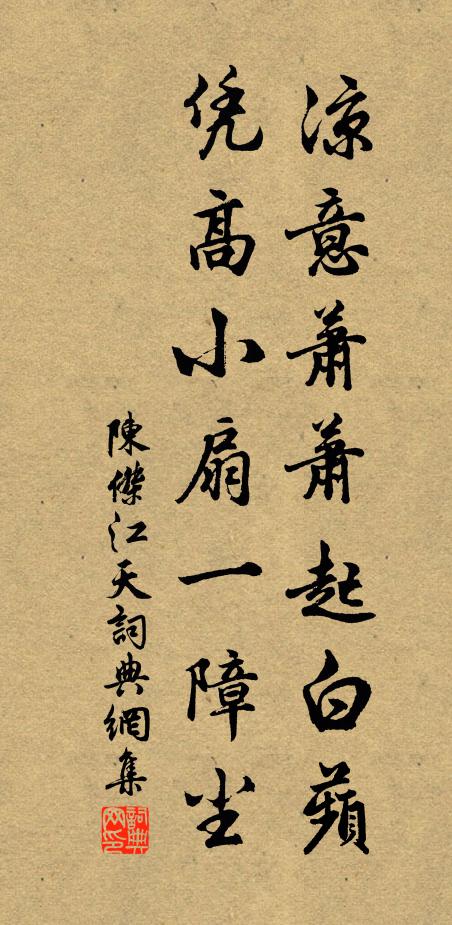 涼意蕭蕭起白蘋
凭高小扇一障尘
陳傑江天詞典網集
詞典网印